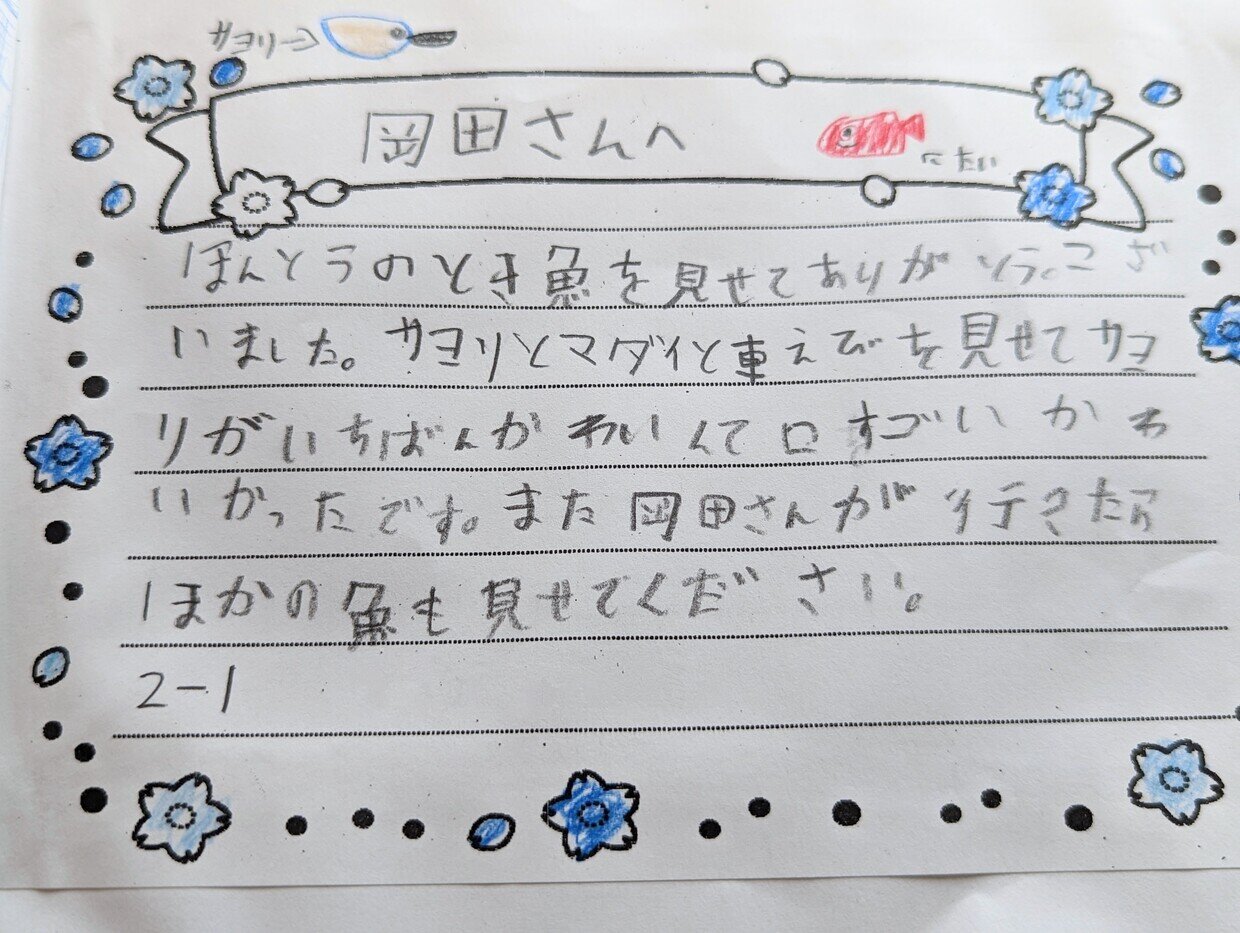 サヨリ→
岡田さんへ
にたい
ほんとうのとき魚を見せてありがとうござ
いました。サヨリとマダイと車えびを見せてサヨ
リがいちばんかわいくて口すごいかわ
いかったです。また岡田さんが行きたら
ほかの魚も見せてください。
2-1